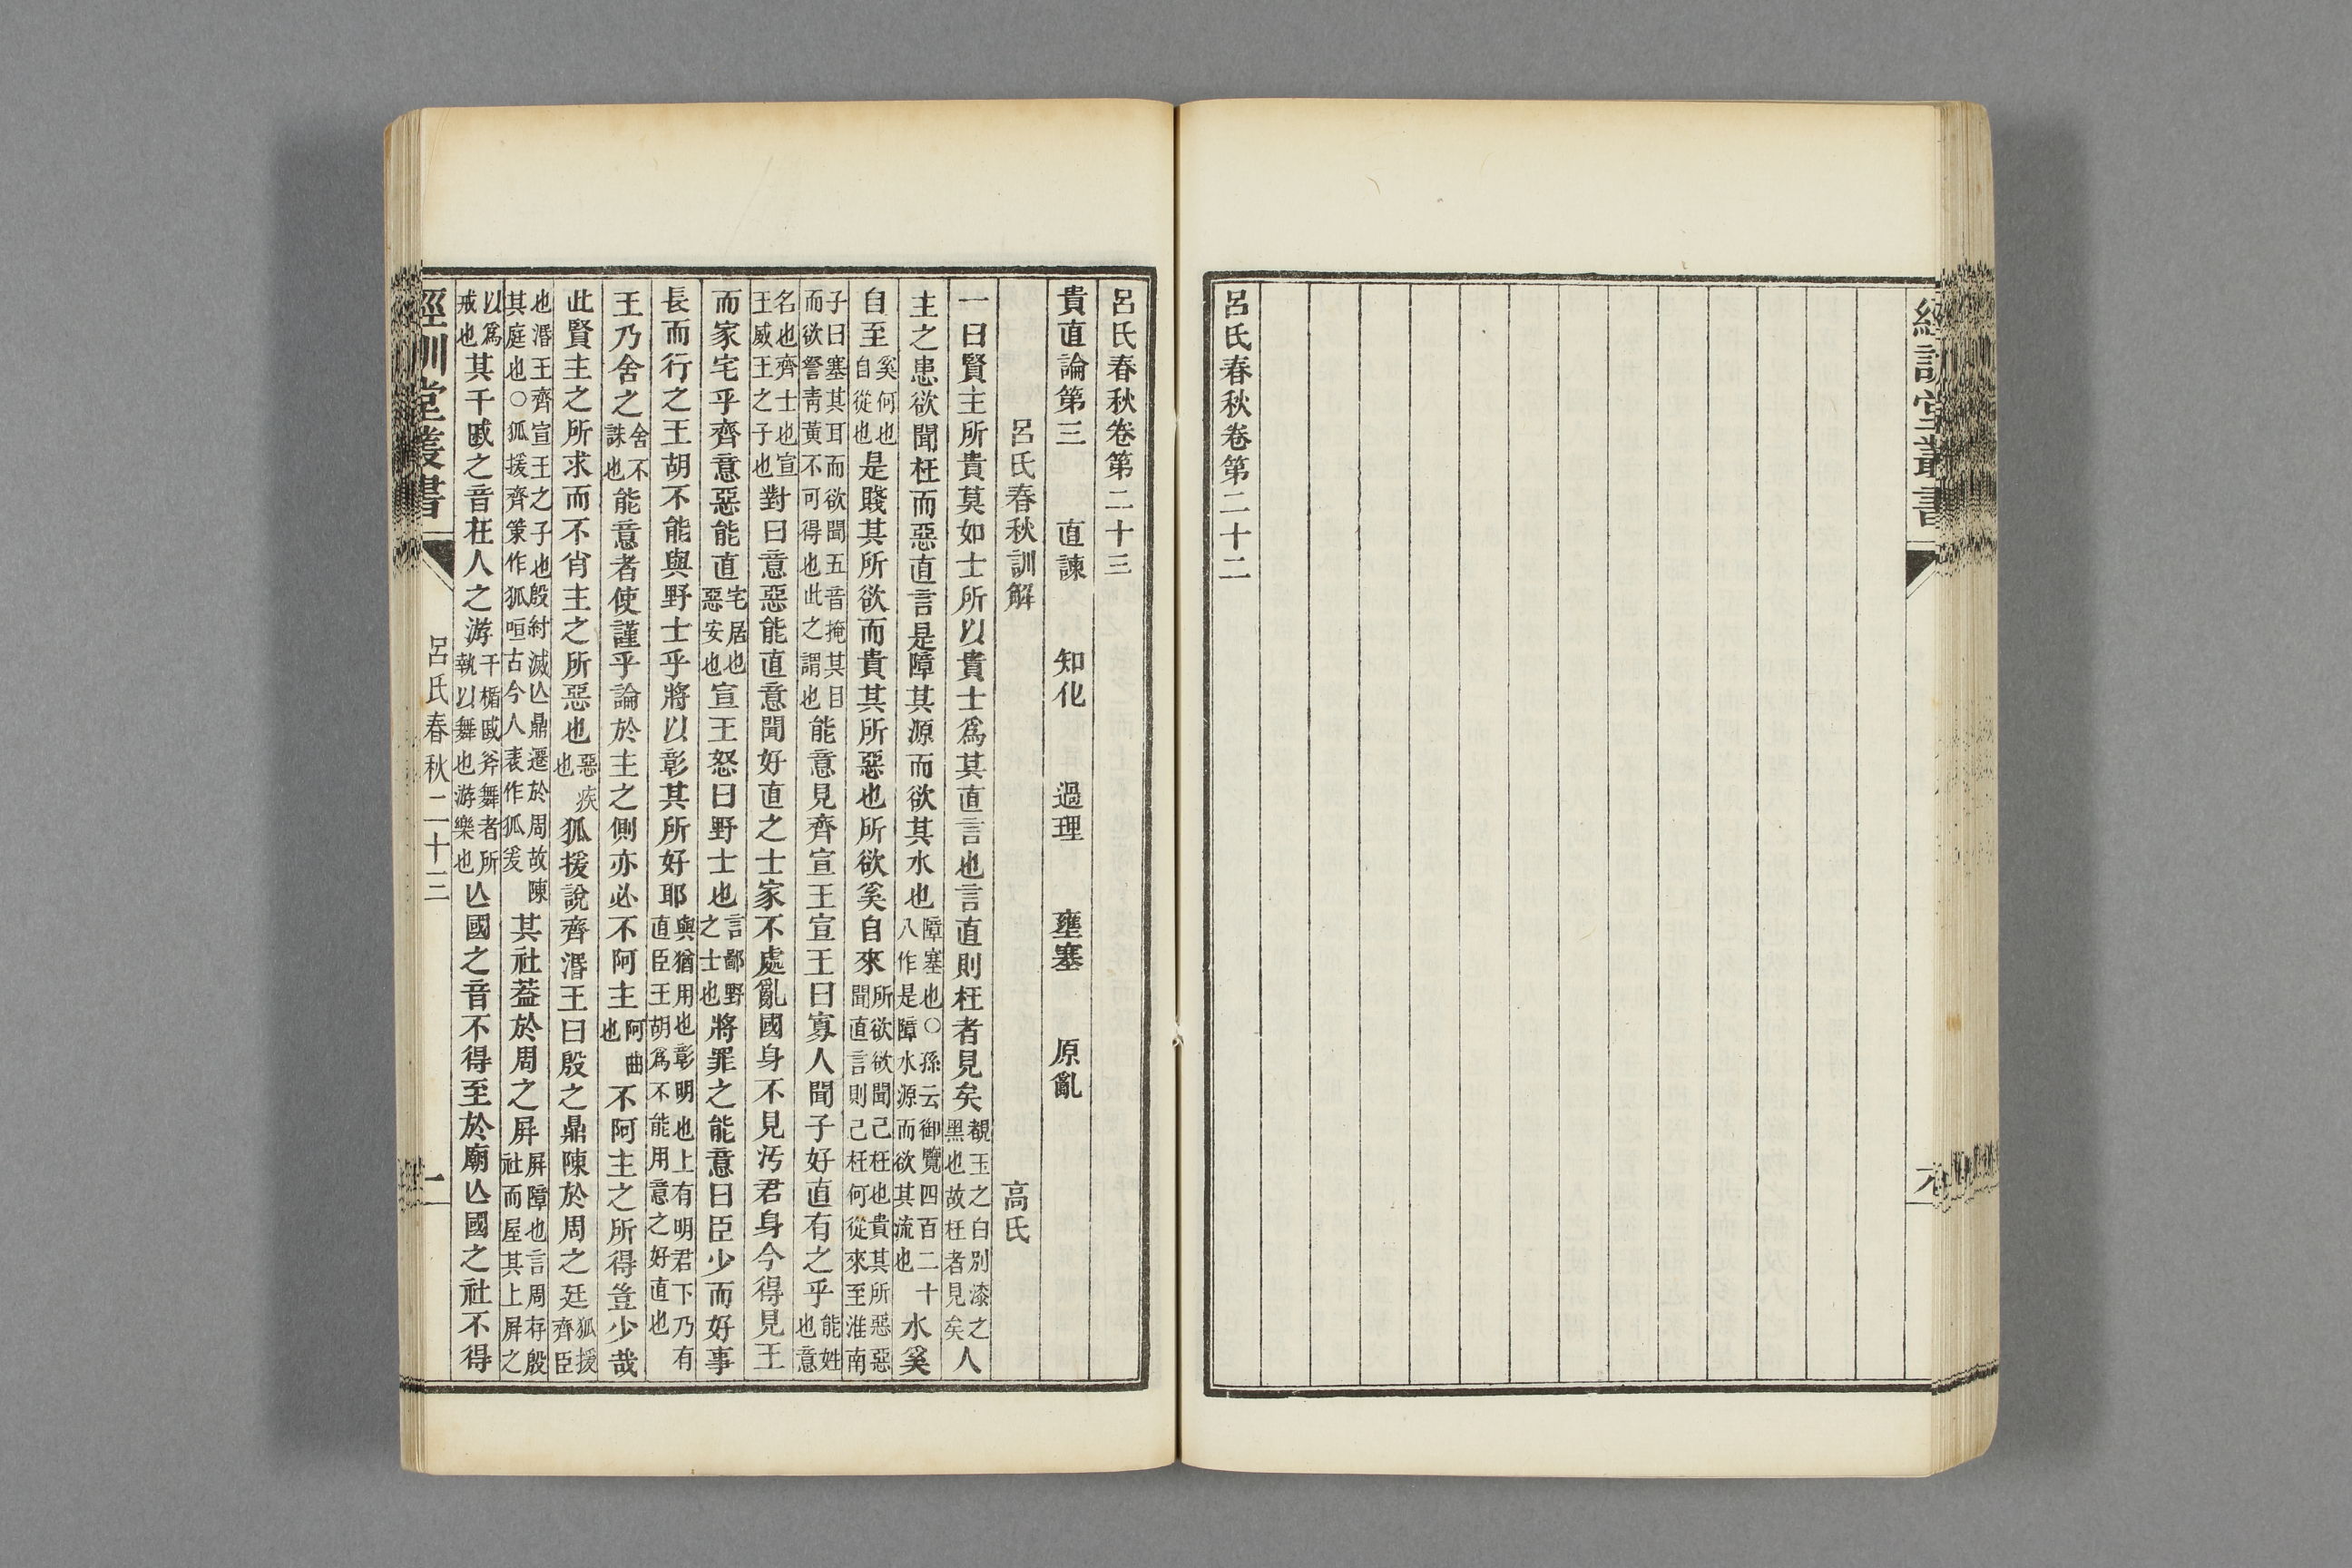 呂氏春秋卷第二十二
呂氏春秋卷第二十三
貴直論第三 直諫 知化 過理 壅塞 原亂
呂氏春秋訓解 高氏
一曰賢主所貴莫如士所以貴士爲其直言也言直則枉者見矣覩玉之白別漆之黑也故枉者見矣人
主之患欲聞枉而惡直言是障其源而欲其水也障塞也〇孫云御覽四百二十八作是障水源而欲其流也水奚
自至奚何也自從也是賤其所欲而貴其所惡也所欲奚自來所欲欲聞己枉也貴其所惡惡聞直言則己枉何從來至淮南
子曰塞其耳而欲聞五音掩其目而欲詧靑黃不可得也此之謂也能意見齊宣王宣王曰寡人聞子好直有之乎能姓也意
名也齊士也宣王威王之子也對曰意惡能直意聞好直之士家不處亂國身不見汚君身今得見王
而家宅乎齊意惡能直宅居也惡安也宣王怒曰野士也言鄙野之士也將罪之能意曰臣少而好事
長而行之王胡不能與野士乎將以彰其所好耶與猶用也彰明也上有明君下乃有直臣王胡爲不能用意之好直也
王乃舍之舍不誅也能意者使謹乎論於主之側亦必不阿主阿曲也不阿主之所得豈少哉
此賢主之所求而不肖主之所惡也惡疾也狐援說齊湣王曰殷之鼎陳於周之廷狐援齊臣
也湣王齊宣王之子也殷紂滅亾鼎遷於周故陳其庭也〇狐援齊策作狐咺古今人表作狐爰其社葢於周之屛屛障也言周存殷社而屋其上屛之
以爲戒也其干戚之音在人之游干楯戚斧舞者所執以舞也游樂也亾國之音不得至於廟亾國之社不得
經訓堂叢書
呂氏春秋二十三
一
經訓堂叢書